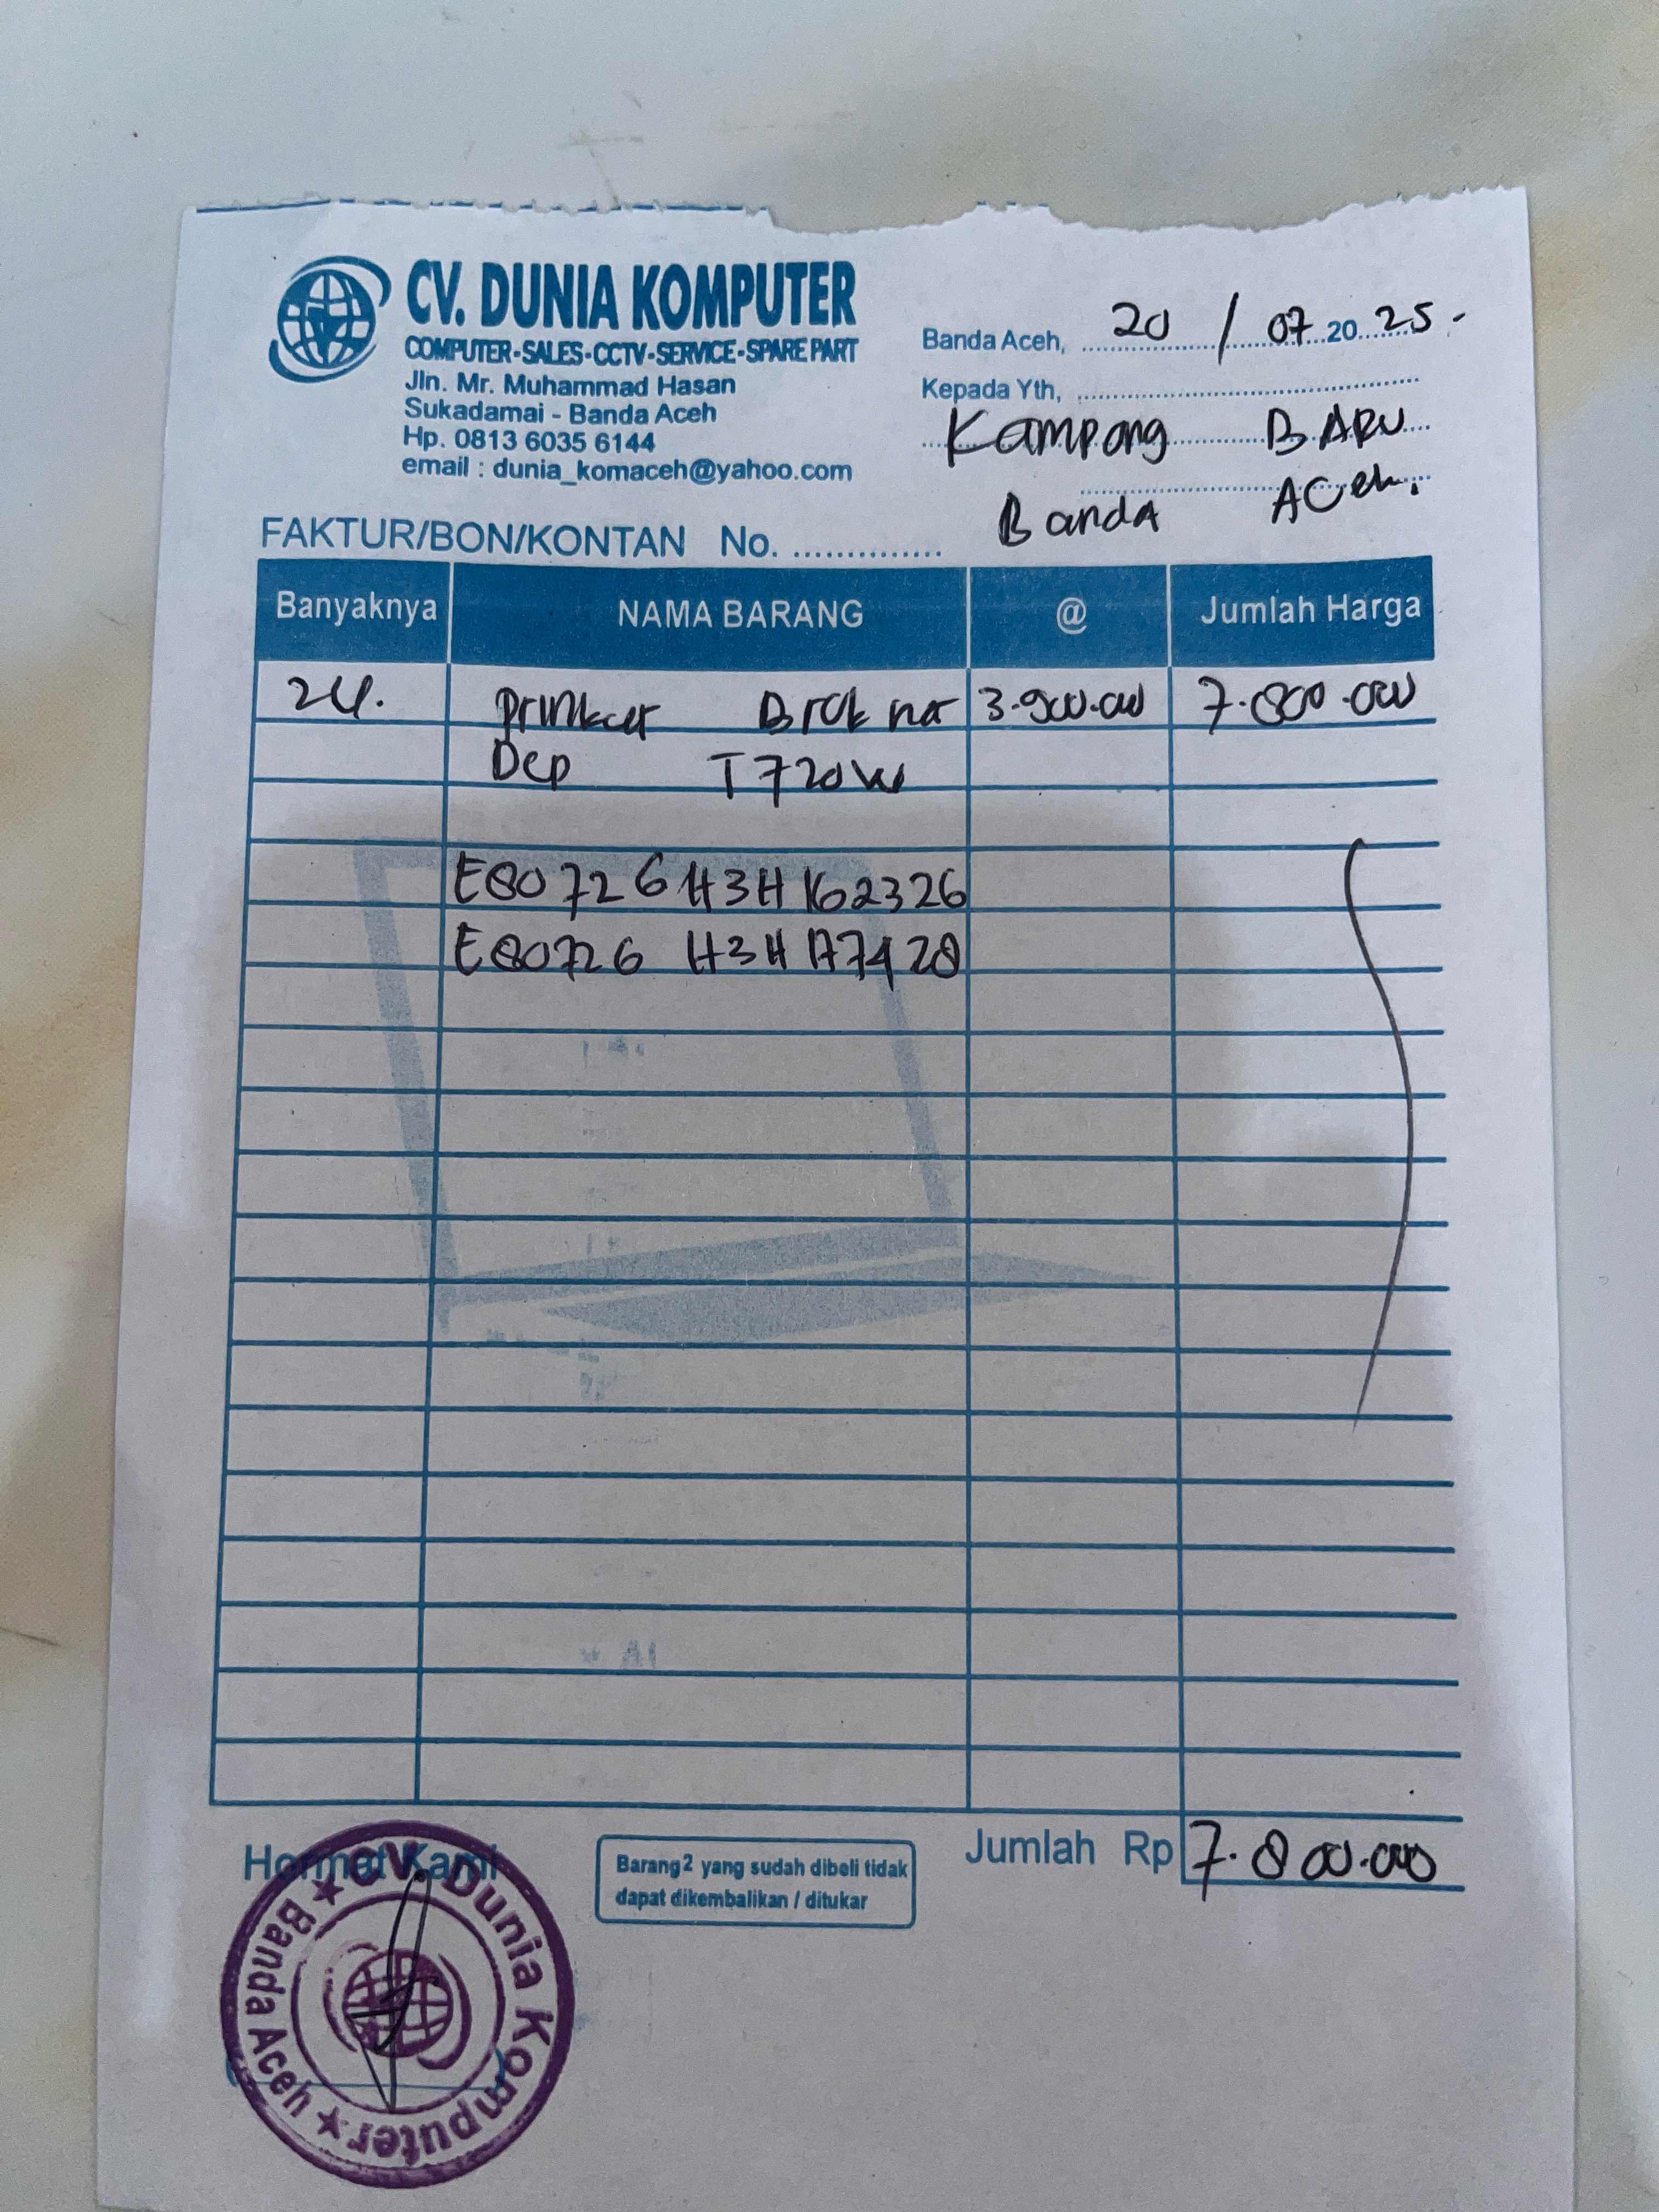 CV. DUNIA KOMPUTER
COMPUTER-SALES-CCTV-SERVICE-SPARE PART
Jln. Mr. Muhammad Hasan
Sukadamai - Banda Aceh
Hp. 0813 6035 6144
email : dunia_komaceh@yahoo.com
Banda Aceh, 20 / 07 20 25 -
Kepada Yth,
Kampong BARU
Banda ACeh.
FAKTUR/BON/KONTAN No. ...............
Banyaknya NAMA BARANG @ Jumlah Harga
2U. 3.900.000 7.800.000
Dcp T720W
E80726H3H162326
E80726 H3H177428
Hormat Kami
Barang2 yang sudah dibeli tidak
dapat dikembalikan / ditukar
Jumlah Rp 7.800.000
CV. Dunia Komputer
Banda Aceh